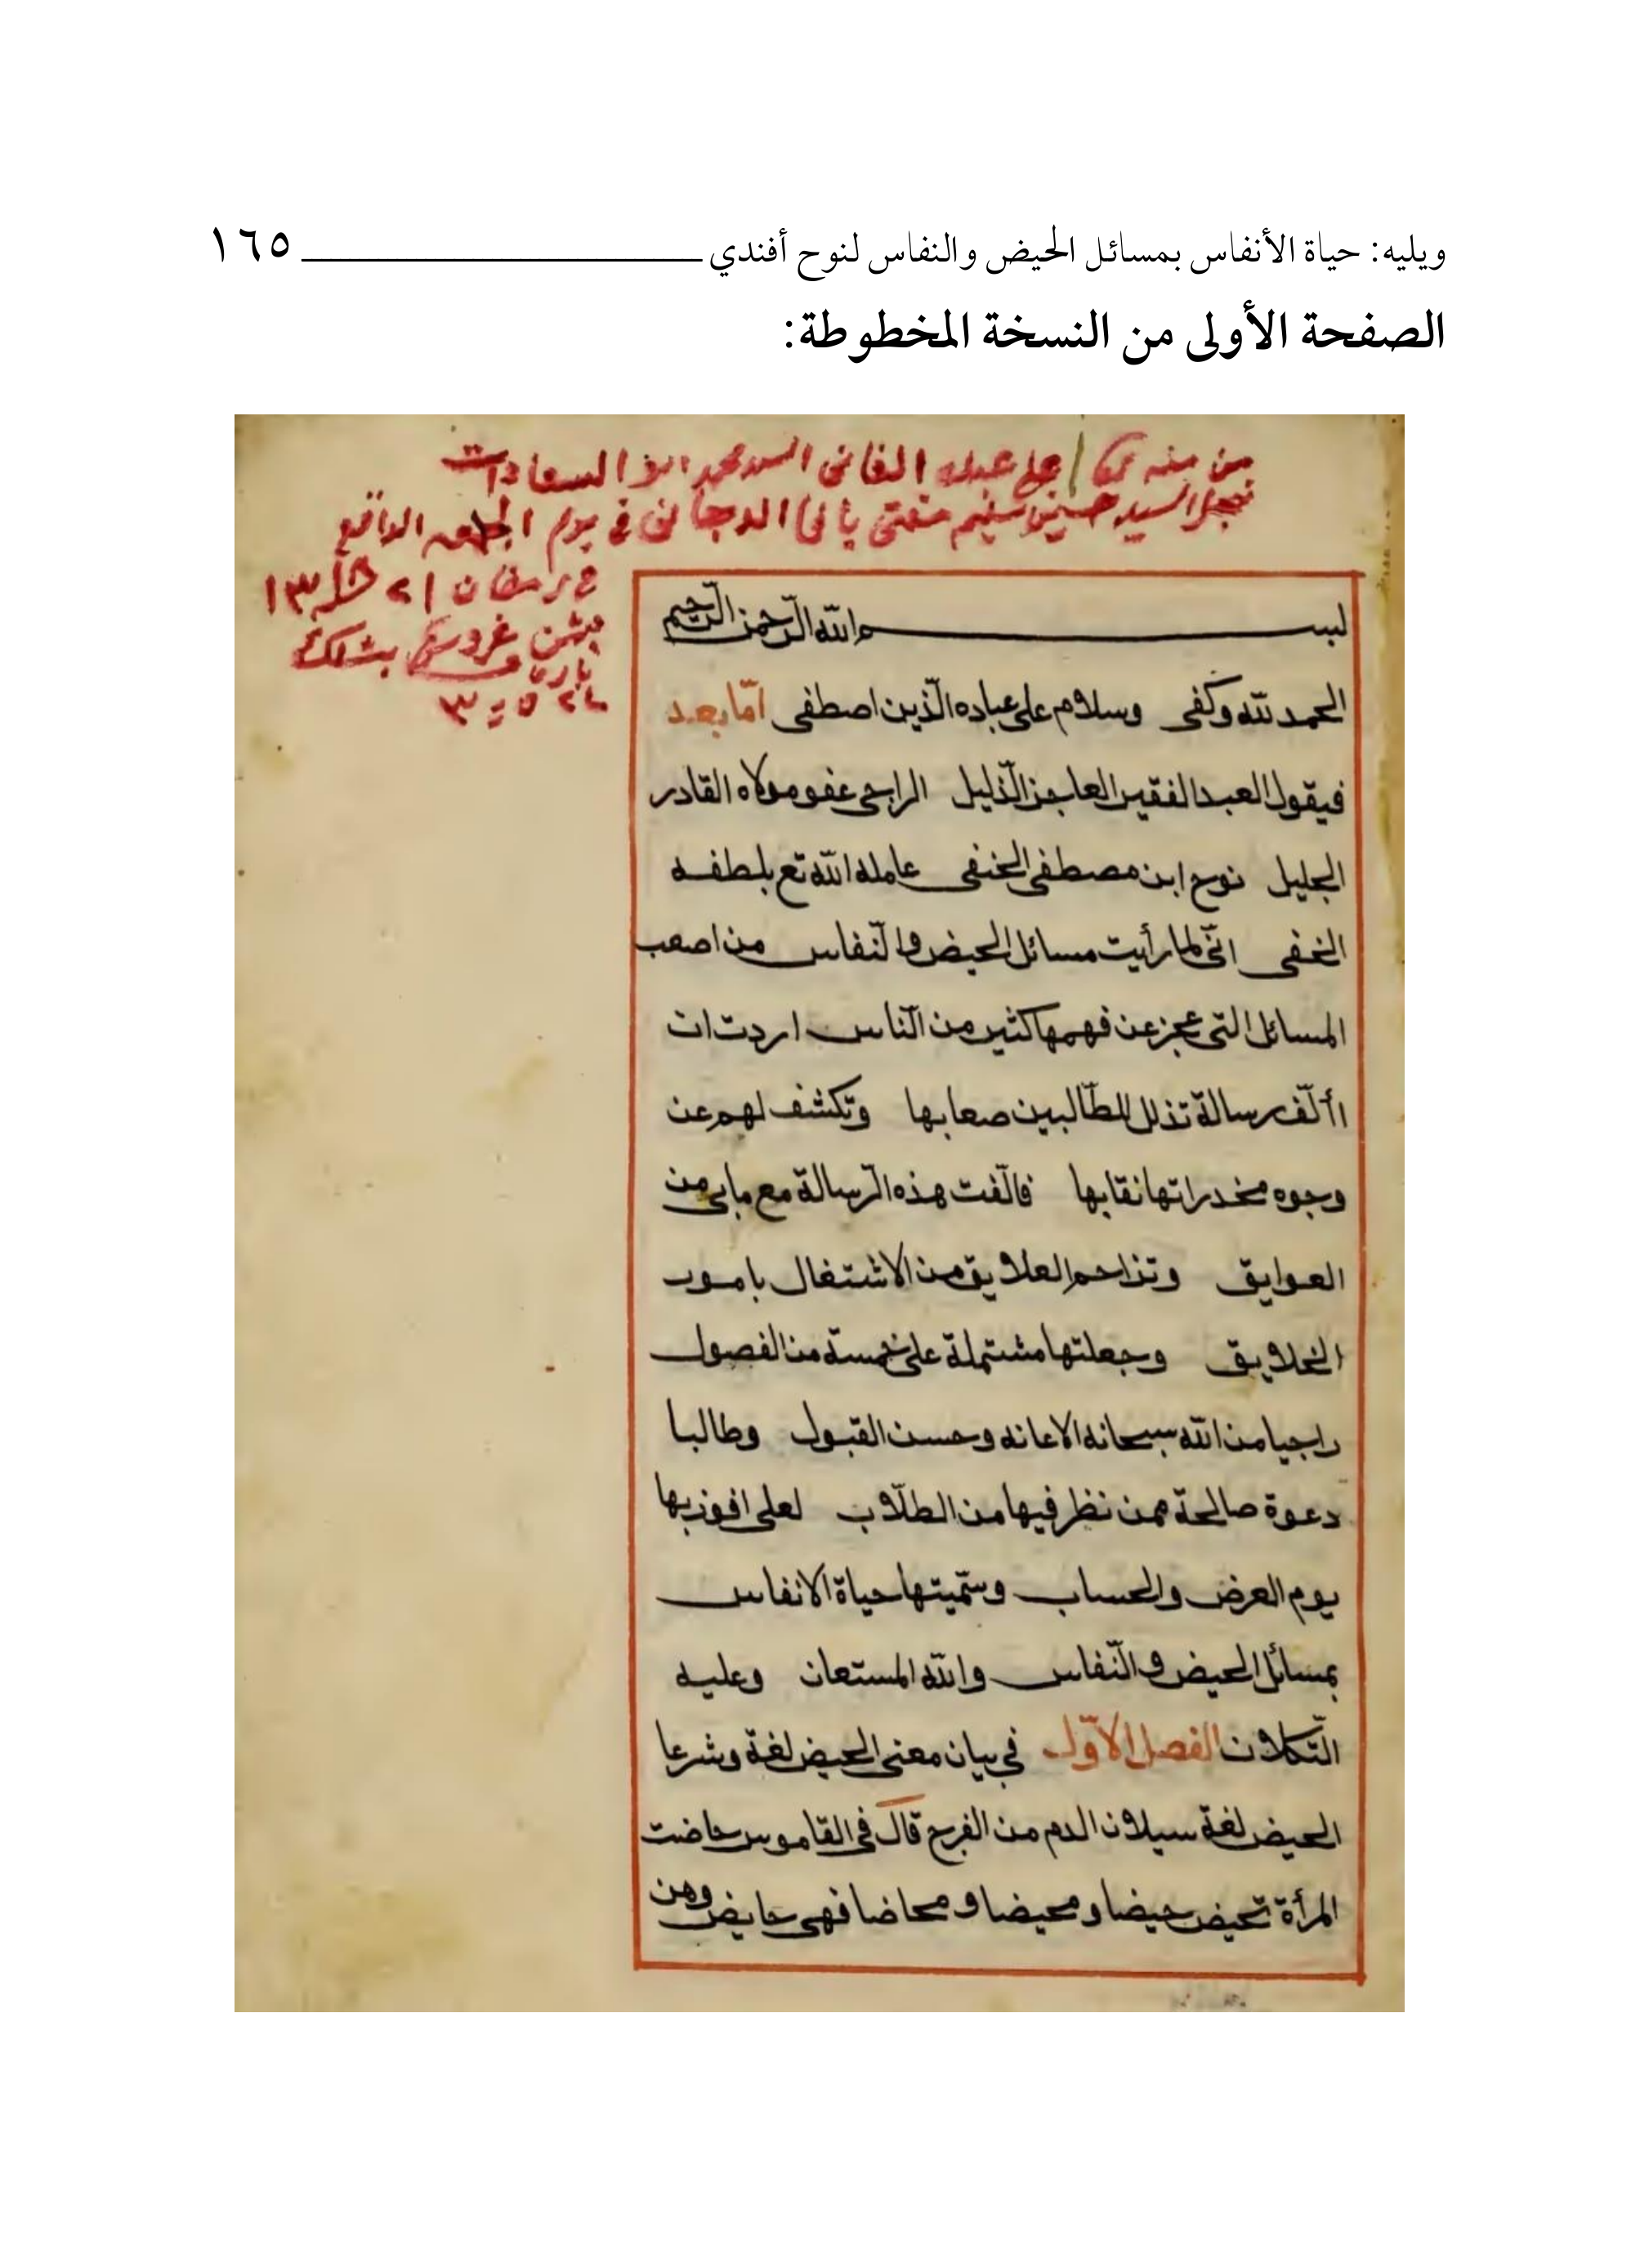 ويليه: حياة الأنفاس بمسائل الحيض والنفاس لنوح أفندي ١٦٥
الصفحة الأولى من النسخة المخطوطة:
من منه تعالى على عبده الفانى السيد محمد ابو السعادات
نجل السيد حسين سليم مفتى يافا الدجانى فى يوم الجمعه الواقع
فى رمضان ٢١
غروش
بسم الله الرّحمن الرّحيم
الحمد لله وكفى وسلام على عباده الّذين اصطفى امّا بعد
فيقول العبد الفقير العاجز الذّليل الراجى عفو مولاه القادر
الجليل نوح ابن مصطفى الحنفى عامله الله تع بلطفه
الخفى انّى لما رأيت مسائل الحيض والنّفاس من اصعب
المسائل التى عجز عن فهمها كثير من النّاس اردت ان
األّف رسالة تذلل للطّالبين صعابها وتكشف لهم عن
وجوه مخدراتها نقابها فالّفت هذه الرّسالة مع مابى من
العوايق وتزاحم العلايق من الاشتغال بامور
الخلايق وجعلتها مشتملة على خمسة من الفصول
راجيا من الله سبحانه الاعانه وحسن القبول وطالبا
دعوة صالحة ممن نظر فيها من الطلّاب لعلى افوز بها
يوم العرض والحساب وسمّيتها حياة الانفاس
بمسائل الحيض والنّفاس والله المستعان وعليه
التّكلان الفصل الاوّل فى بيان معنى الحيض لغة وشرعا
الحيض لغة سيلان الدم من الفرج قال فى القاموس حاضت
المرأة تحيض حيضا ومحيضا ومحاضا فهى حايض وهن